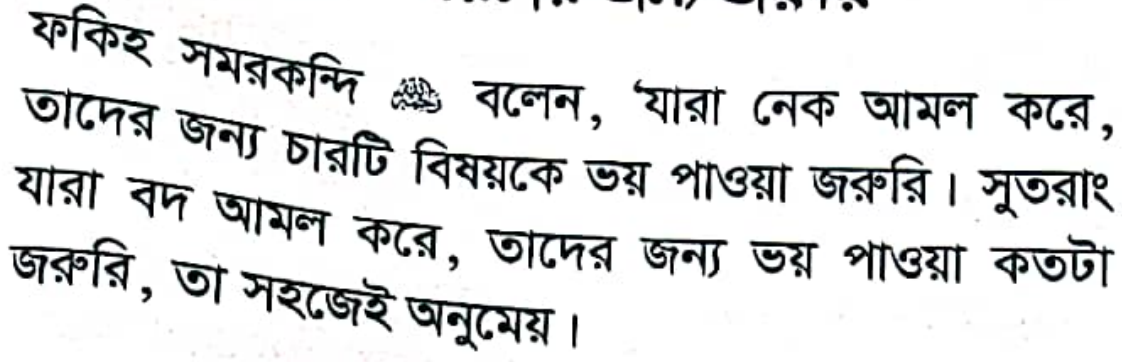 ফকিহ সমরকন্দি বলেন, ‘যারা নেক আমল করে,
তাদের জন্য চারটি বিষয়কে ভয় পাওয়া জরুরি। সুতরাং
যারা বদ আমল করে, তাদের জন্য ভয় পাওয়া কতটা
জরুরি, তা সহজেই অনুমেয়।